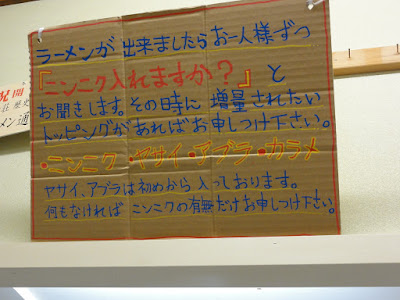 ラーメンが出来ましたらお一人様ずつ
『ニンニク入れますか？』と
お聞きします。その時に増量されたい
トッピングがあればお申しつけ下さい。
・ニンニク・ヤサイ・アブラ・カラメ
ヤサイ、アブラは初めから入っております。
何もなければニンニクの有無だけお申しつけ下さい。